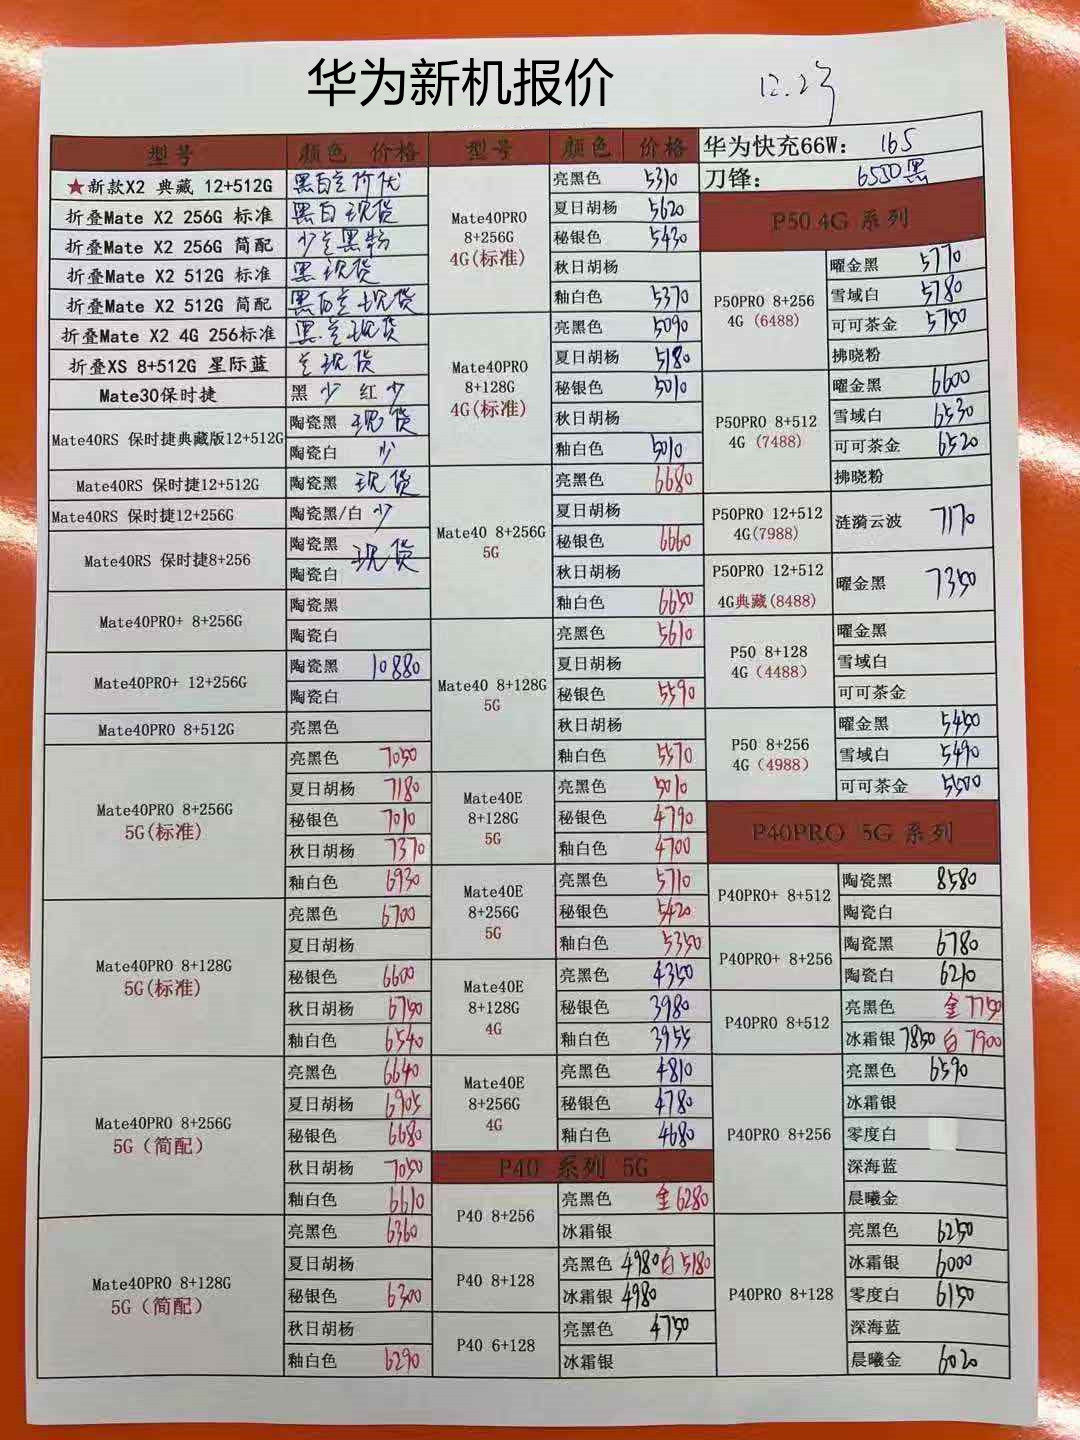 华为新机报价
12.2号
型号 颜色 价格 型号 颜色 价格 华为快充66W: 165
刀锋: 6550黑
★新款X2 典藏 12+512G
折叠Mate X2 256G 标准 黑白现货
折叠Mate X2 256G 简配
折叠Mate X2 512G 标准 黑现货
折叠Mate X2 512G 简配
折叠Mate X2 4G 256标准
折叠XS 8+512G 星际蓝
Mate30保时捷 黑 少 红 少
Mate40RS 保时捷典藏版12+512G
陶瓷黑 现货
陶瓷白 少
Mate40RS 保时捷12+512G 陶瓷黑 现货
Mate40RS 保时捷12+256G 陶瓷黑/白 少
Mate40RS 保时捷8+256
陶瓷黑 现货
陶瓷白
Mate40PRO+ 8+256G
陶瓷黑
陶瓷白
Mate40PRO+ 12+256G
陶瓷黑 10880
陶瓷白
Mate40PRO 8+512G 亮黑色
Mate40PRO 8+256G
5G(标准)
亮黑色 7050
夏日胡杨 7180
秘银色 7010
秋日胡杨 7370
釉白色 6930
Mate40PRO 8+128G
5G(标准)
亮黑色 6700
夏日胡杨
秘银色 6600
秋日胡杨 6750
釉白色 6540
Mate40PRO 8+256G
5G（简配）
亮黑色 6640
夏日胡杨 6905
秘银色 6680
秋日胡杨 7050
釉白色 6610
Mate40PRO 8+128G
5G（简配）
亮黑色 6360
夏日胡杨
秘银色 6300
秋日胡杨
釉白色 6290
Mate40PRO
8+256G
4G(标准)
亮黑色 5310
夏日胡杨 5620
秘银色 5430
秋日胡杨
釉白色 5370
Mate40PRO
8+128G
4G(标准)
亮黑色 5090
夏日胡杨 5180
秘银色 5010
秋日胡杨
釉白色 5010
Mate40 8+256G
5G
亮黑色 6680
夏日胡杨
秘银色 6660
秋日胡杨
釉白色 6650
Mate40 8+128G
5G
亮黑色 5610
夏日胡杨
秘银色 5590
秋日胡杨
釉白色 5570
Mate40E
8+128G
5G
亮黑色 5010
秘银色 4790
釉白色 4700
Mate40E
8+256G
5G
亮黑色 5710
秘银色 5420
釉白色 5350
Mate40E
8+128G
4G
亮黑色 4350
秘银色 3980
釉白色 3955
Mate40E
8+256G
4G
亮黑色 4810
秘银色 4780
釉白色 4680
P40 系列 5G
P40 8+256
亮黑色 金6280
冰霜银
P40 8+128
亮黑色 4980 白5180
冰霜银 4980
P40 6+128
亮黑色 4750
冰霜银
P50 4G 系列
P50PRO 8+256
4G (6488)
曜金黑 5770
雪域白 5780
可可茶金 5750
拂晓粉
P50PRO 8+512
4G (7488)
曜金黑 6600
雪域白 6530
可可茶金 6520
拂晓粉
P50PRO 12+512
4G(7988)
涟漪云波 7170
P50PRO 12+512
4G典藏(8488)
曜金黑 7350
P50 8+128
4G（4488）
曜金黑
雪域白
可可茶金
P50 8+256
4G（4988）
曜金黑 5450
雪域白 5490
可可茶金 5500
P40PRO 5G 系列
P40PRO+ 8+512
陶瓷黑 8580
陶瓷白
P40PRO+ 8+256
陶瓷黑 6780
陶瓷白 6210
P40PRO 8+512
亮黑色 金7750
冰霜银 7850 白7900
P40PRO 8+256
亮黑色 6590
冰霜银
零度白
深海蓝
晨曦金
P40PRO 8+128
亮黑色 6250
冰霜银 6000
零度白 6150
深海蓝
晨曦金 6020